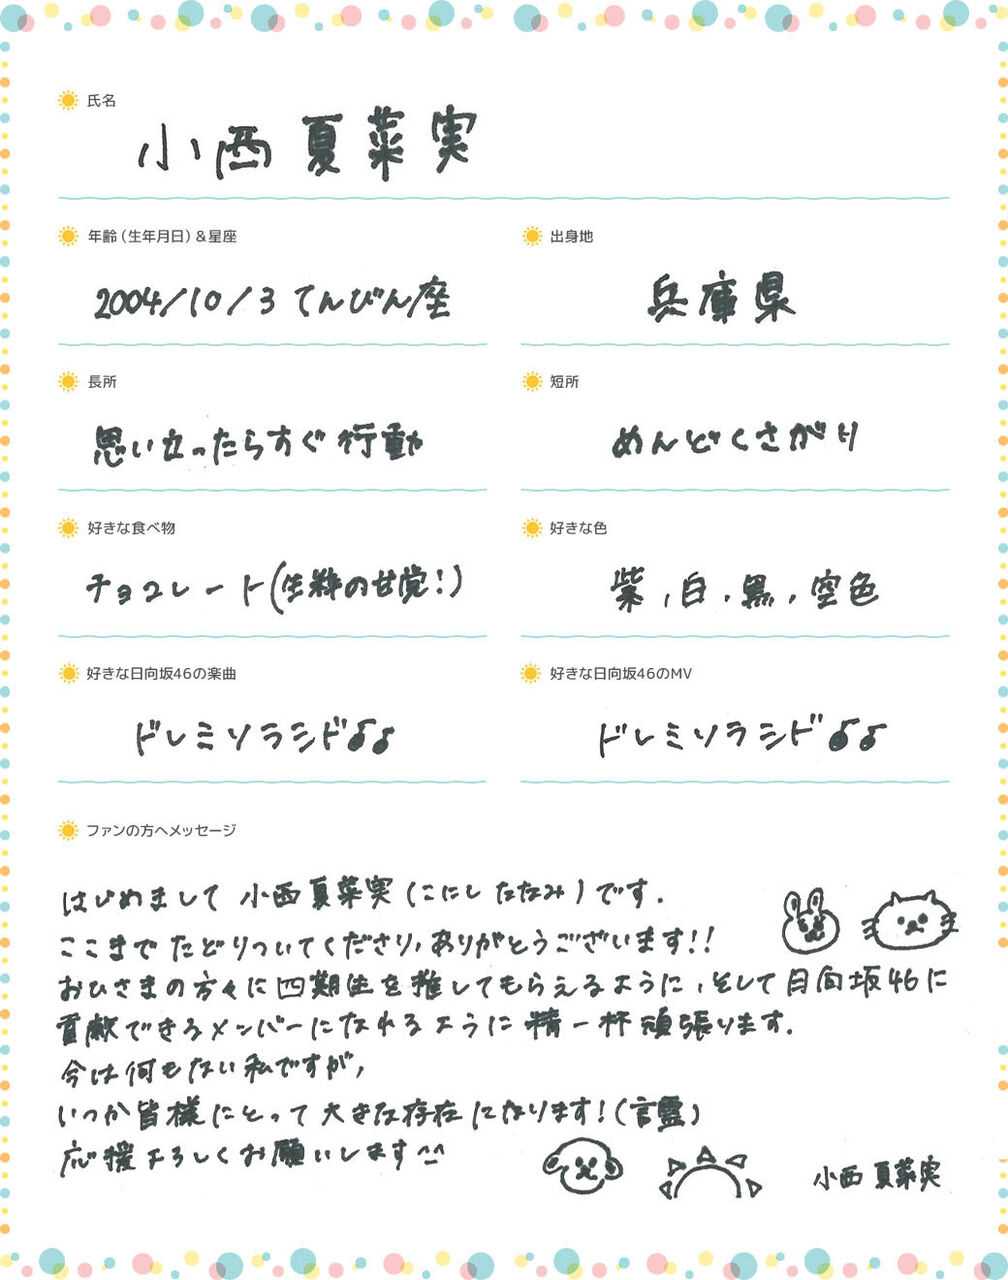 氏名
小西夏菜実
年齢（生年月日）＆星座
2004/10/3 てんびん座
出身地
兵庫県
長所
思い立ったらすぐ行動
短所
めんどくさがり
好きな食べ物
チョコレート(生粋の甘党!)
好きな色
紫,白,黒,空色
好きな日向坂46の楽曲
ドレミソラシド♪♪
好きな日向坂46のMV
ドレミソラシド♪♪
ファンの方へメッセージ
はじめまして 小西夏菜実(こにし ななみ)です.
ここまで たどりついてくださり,ありがとうございます!!
おひさまの方々に四期生を推してもらえるように,そして日向坂46に
貢献できるメンバーになれるように精一杯頑張ります.
今は何もない私ですが,
いつか皆様にとって大きな存在になります!(言霊)
応援よろしくお願いします^^
小西夏菜実